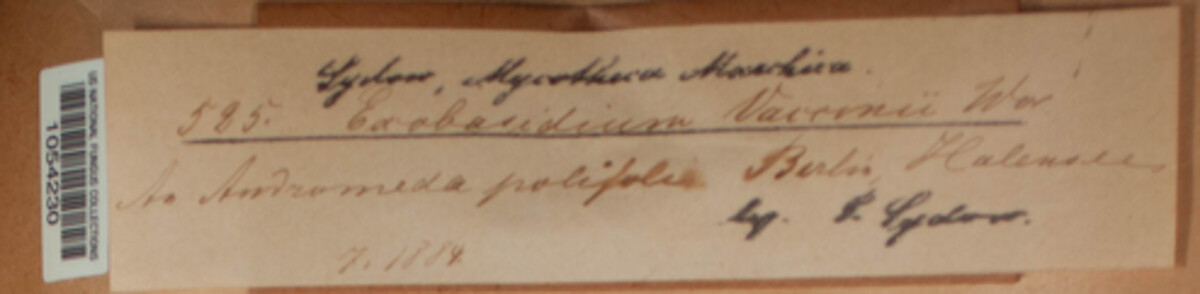 US NATIONAL FUNGUS COLLECTIONS
1054230
Sydow, Mycotheca Marchica.
525. Exobasidium Vaccinii Wor
An Andromeda polifolia Berlin, Halensee
leg. P. Sydow.
7. 1884